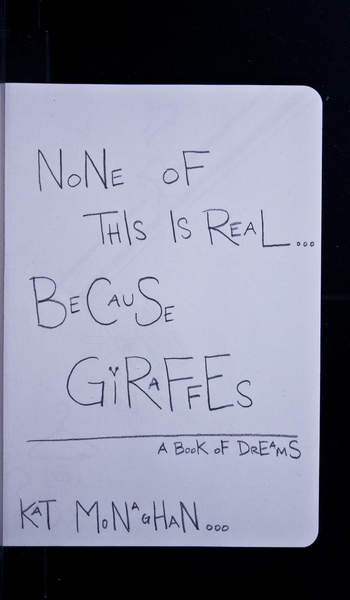 NoNe oF
THIs Is ReaL...
BeCauSe
GiRaFFEs
A BooK oF DReaMS
KaT MoNagHaN...